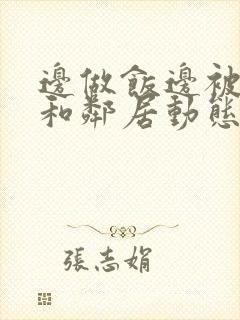 邊做飯邊被
和鄰居動態
張志娟